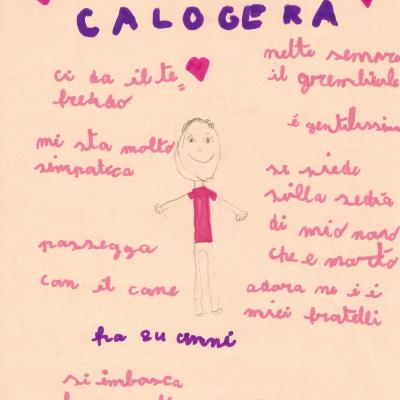 CALOGERA
ci da il te
freddo
mi sta molto
simpatica
passegga
con il cane
nelte sempre
il grembiule
é gentilissim
si siede
sulla sedia
di mio nono
che e morto
adora no i i
miei fratelli
ha 84 anni
si imbosca